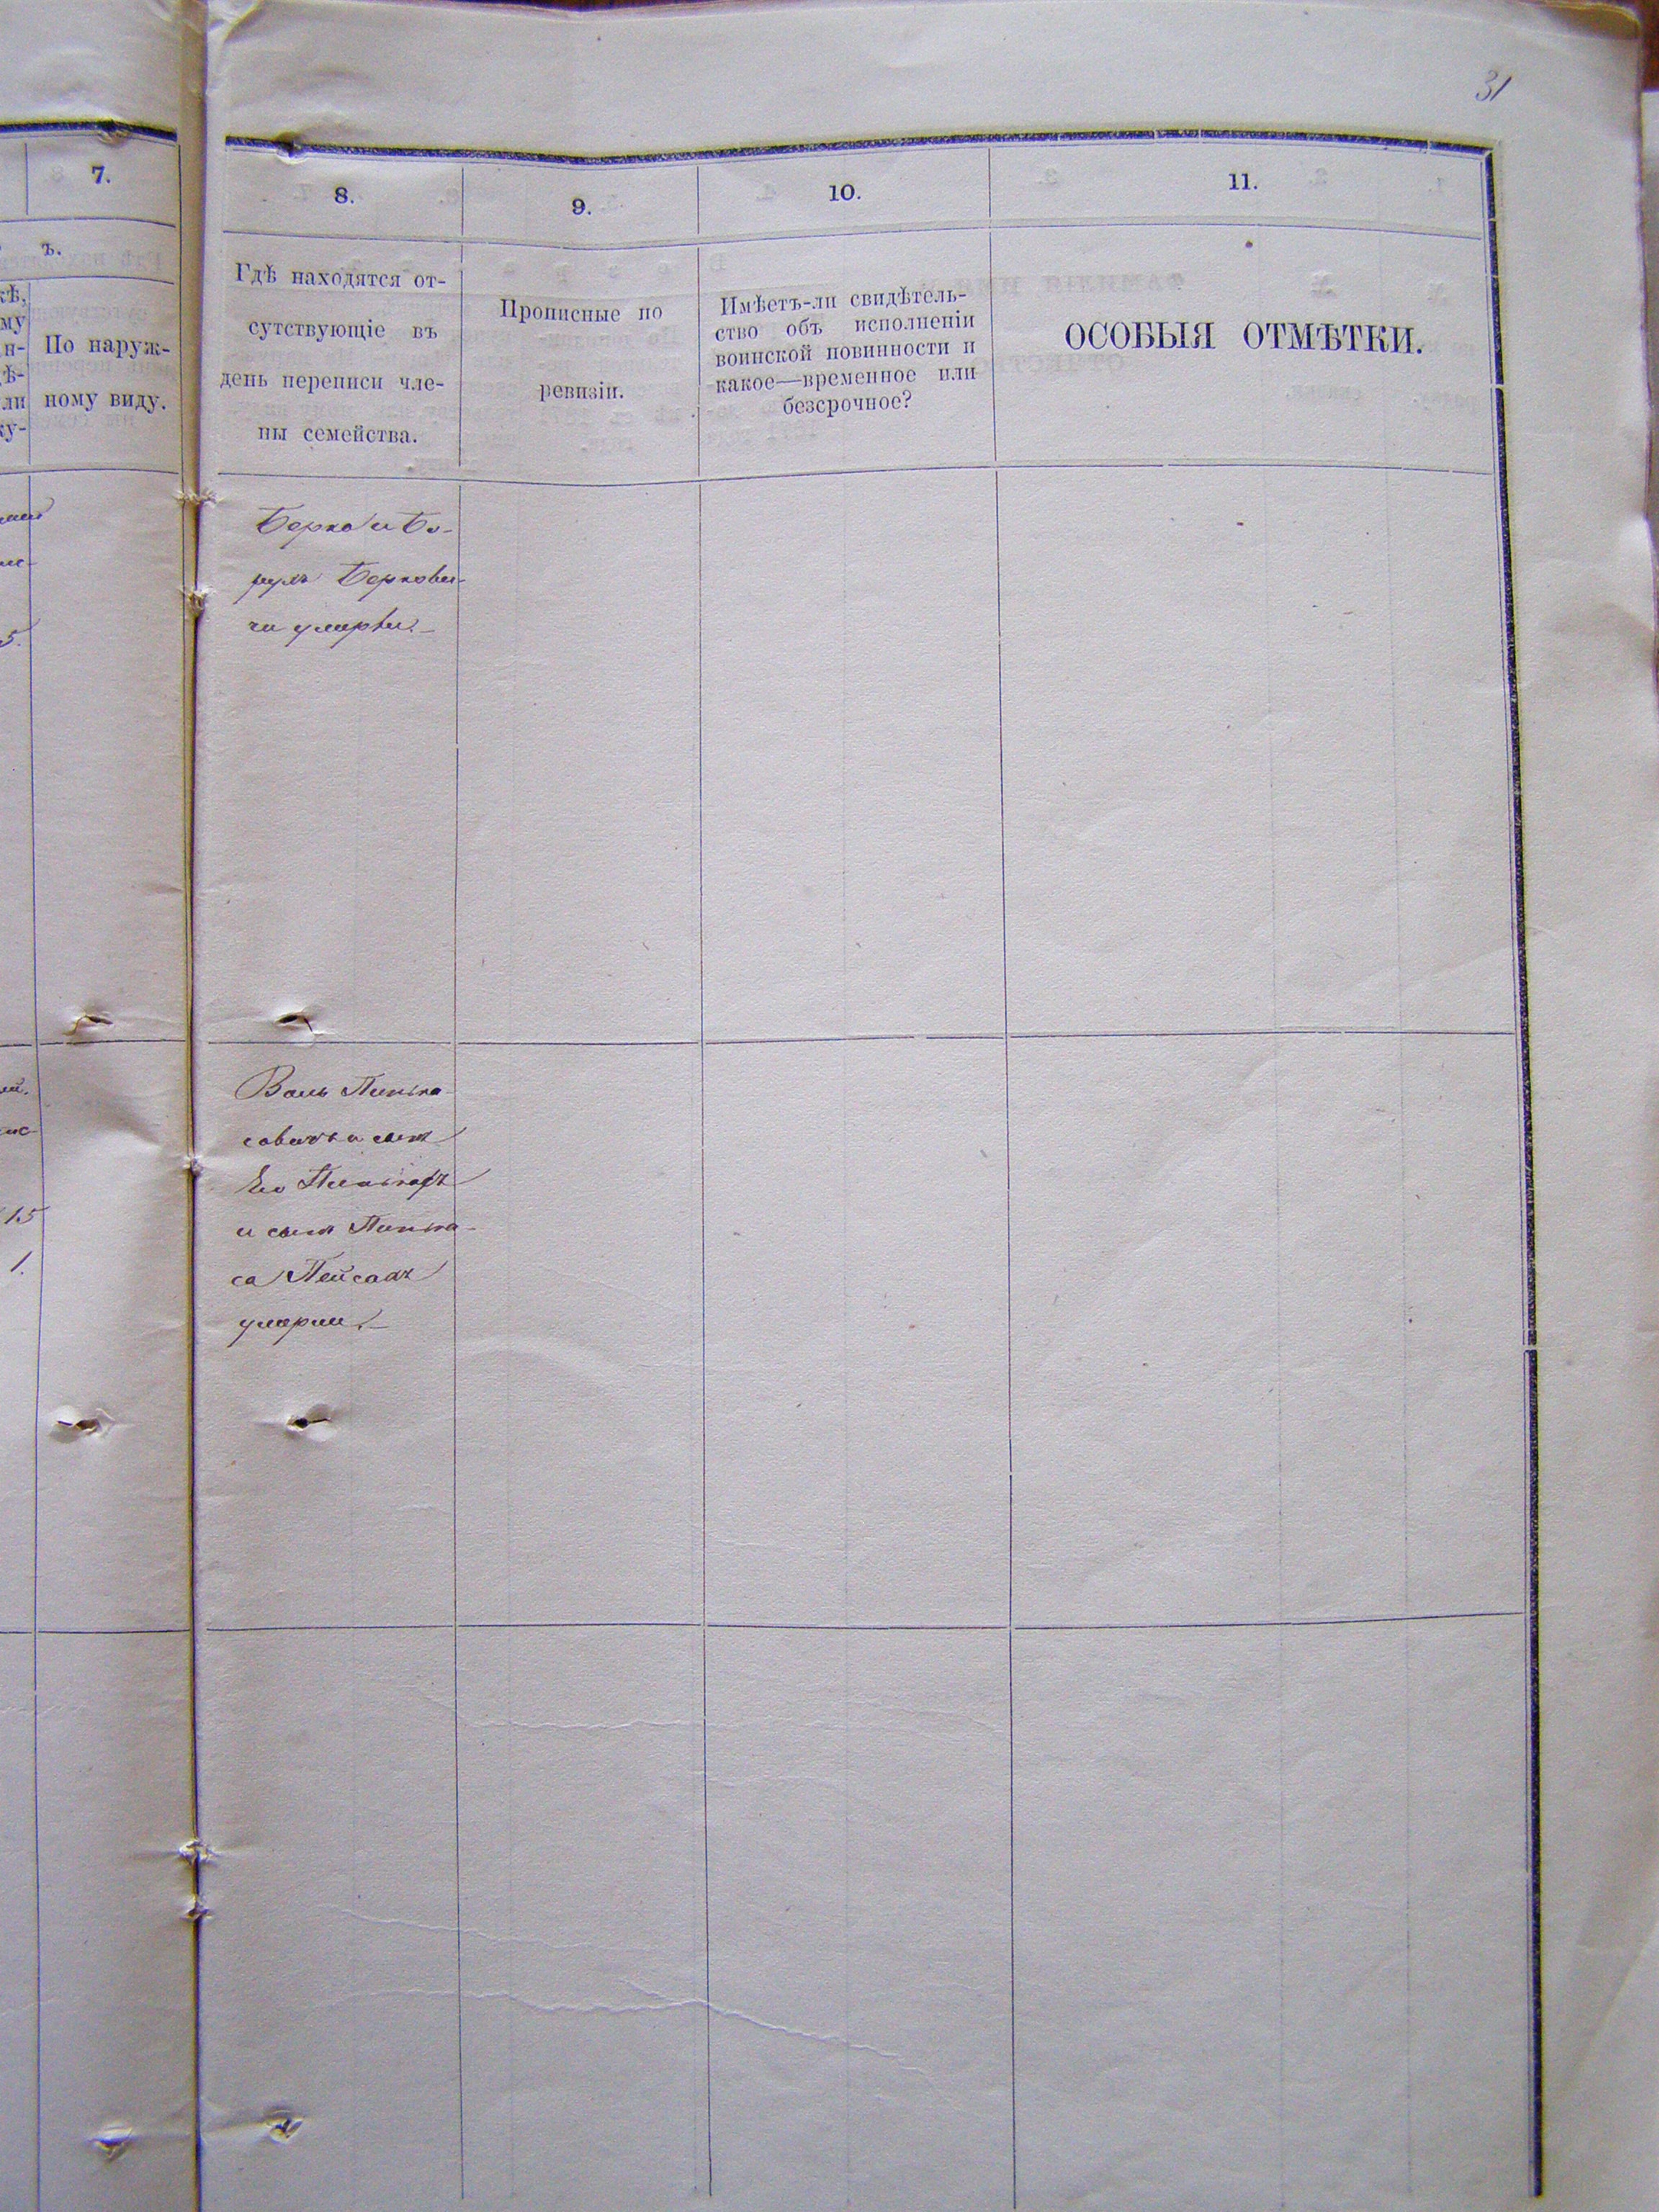 31
7.
ъ.
По наруж-
ному виду.
8.
9.
10.
11.
Гдѣ находятся от-
сутствующіе въ
день переписи чле-
ны семейства.
Прописные по
ревизіи.
Имѣетъ-ли свидѣтель-
ство объ исполненіи
воинской повинности и
какое—временное или
безсрочное?
ОСОБЫЯ ОТМѢТКИ.
Берко и Бо-
рухъ Беркови-
чи умерли.
5.
Пинка-
совичъ и сынъ
Его Пинкасъ
и сынъ Пинка-
са Пейсахъ
умерли.
15
1.